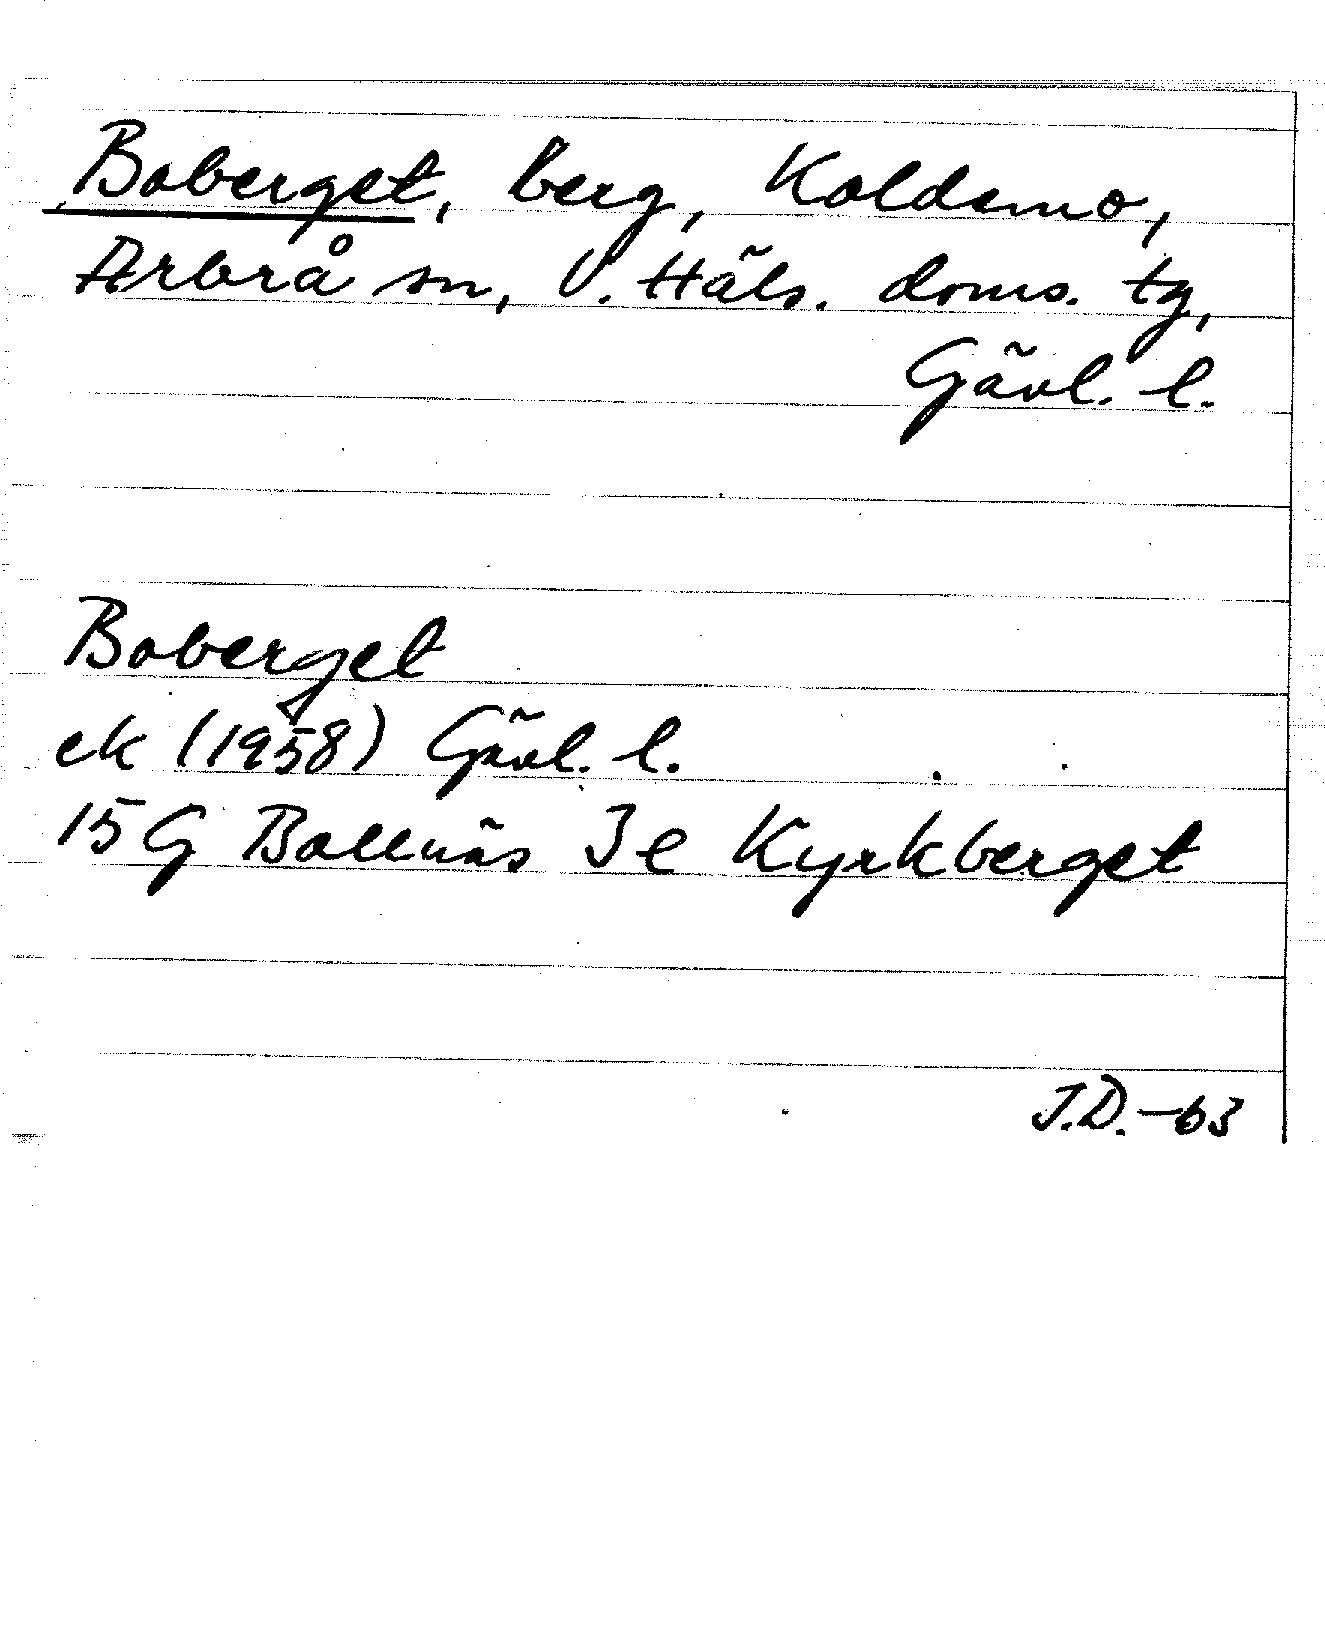 Boberget, berg, Koldemo,
Arbrå sn, V. Häls. doms. tg,
Gävl. l.
Boberget
ek (1958) Gävl. l.
15 G Bollnäs 3 e Kyrkberget
J.D.-63